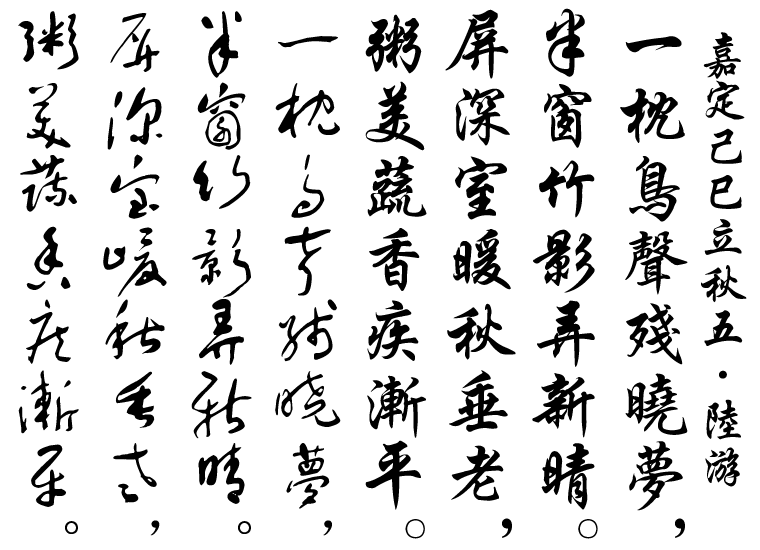 嘉定己巳立秋五·陸游
一枕鳥聲殘曉夢，
半窗竹影弄新晴。
屏深室暖秋垂老，
粥美蔬香疾漸平。
一枕鸟声残晓夢，
半窗竹影弄新晴。
屏深室暖秋垂老，
粥美蔬香疾漸平。